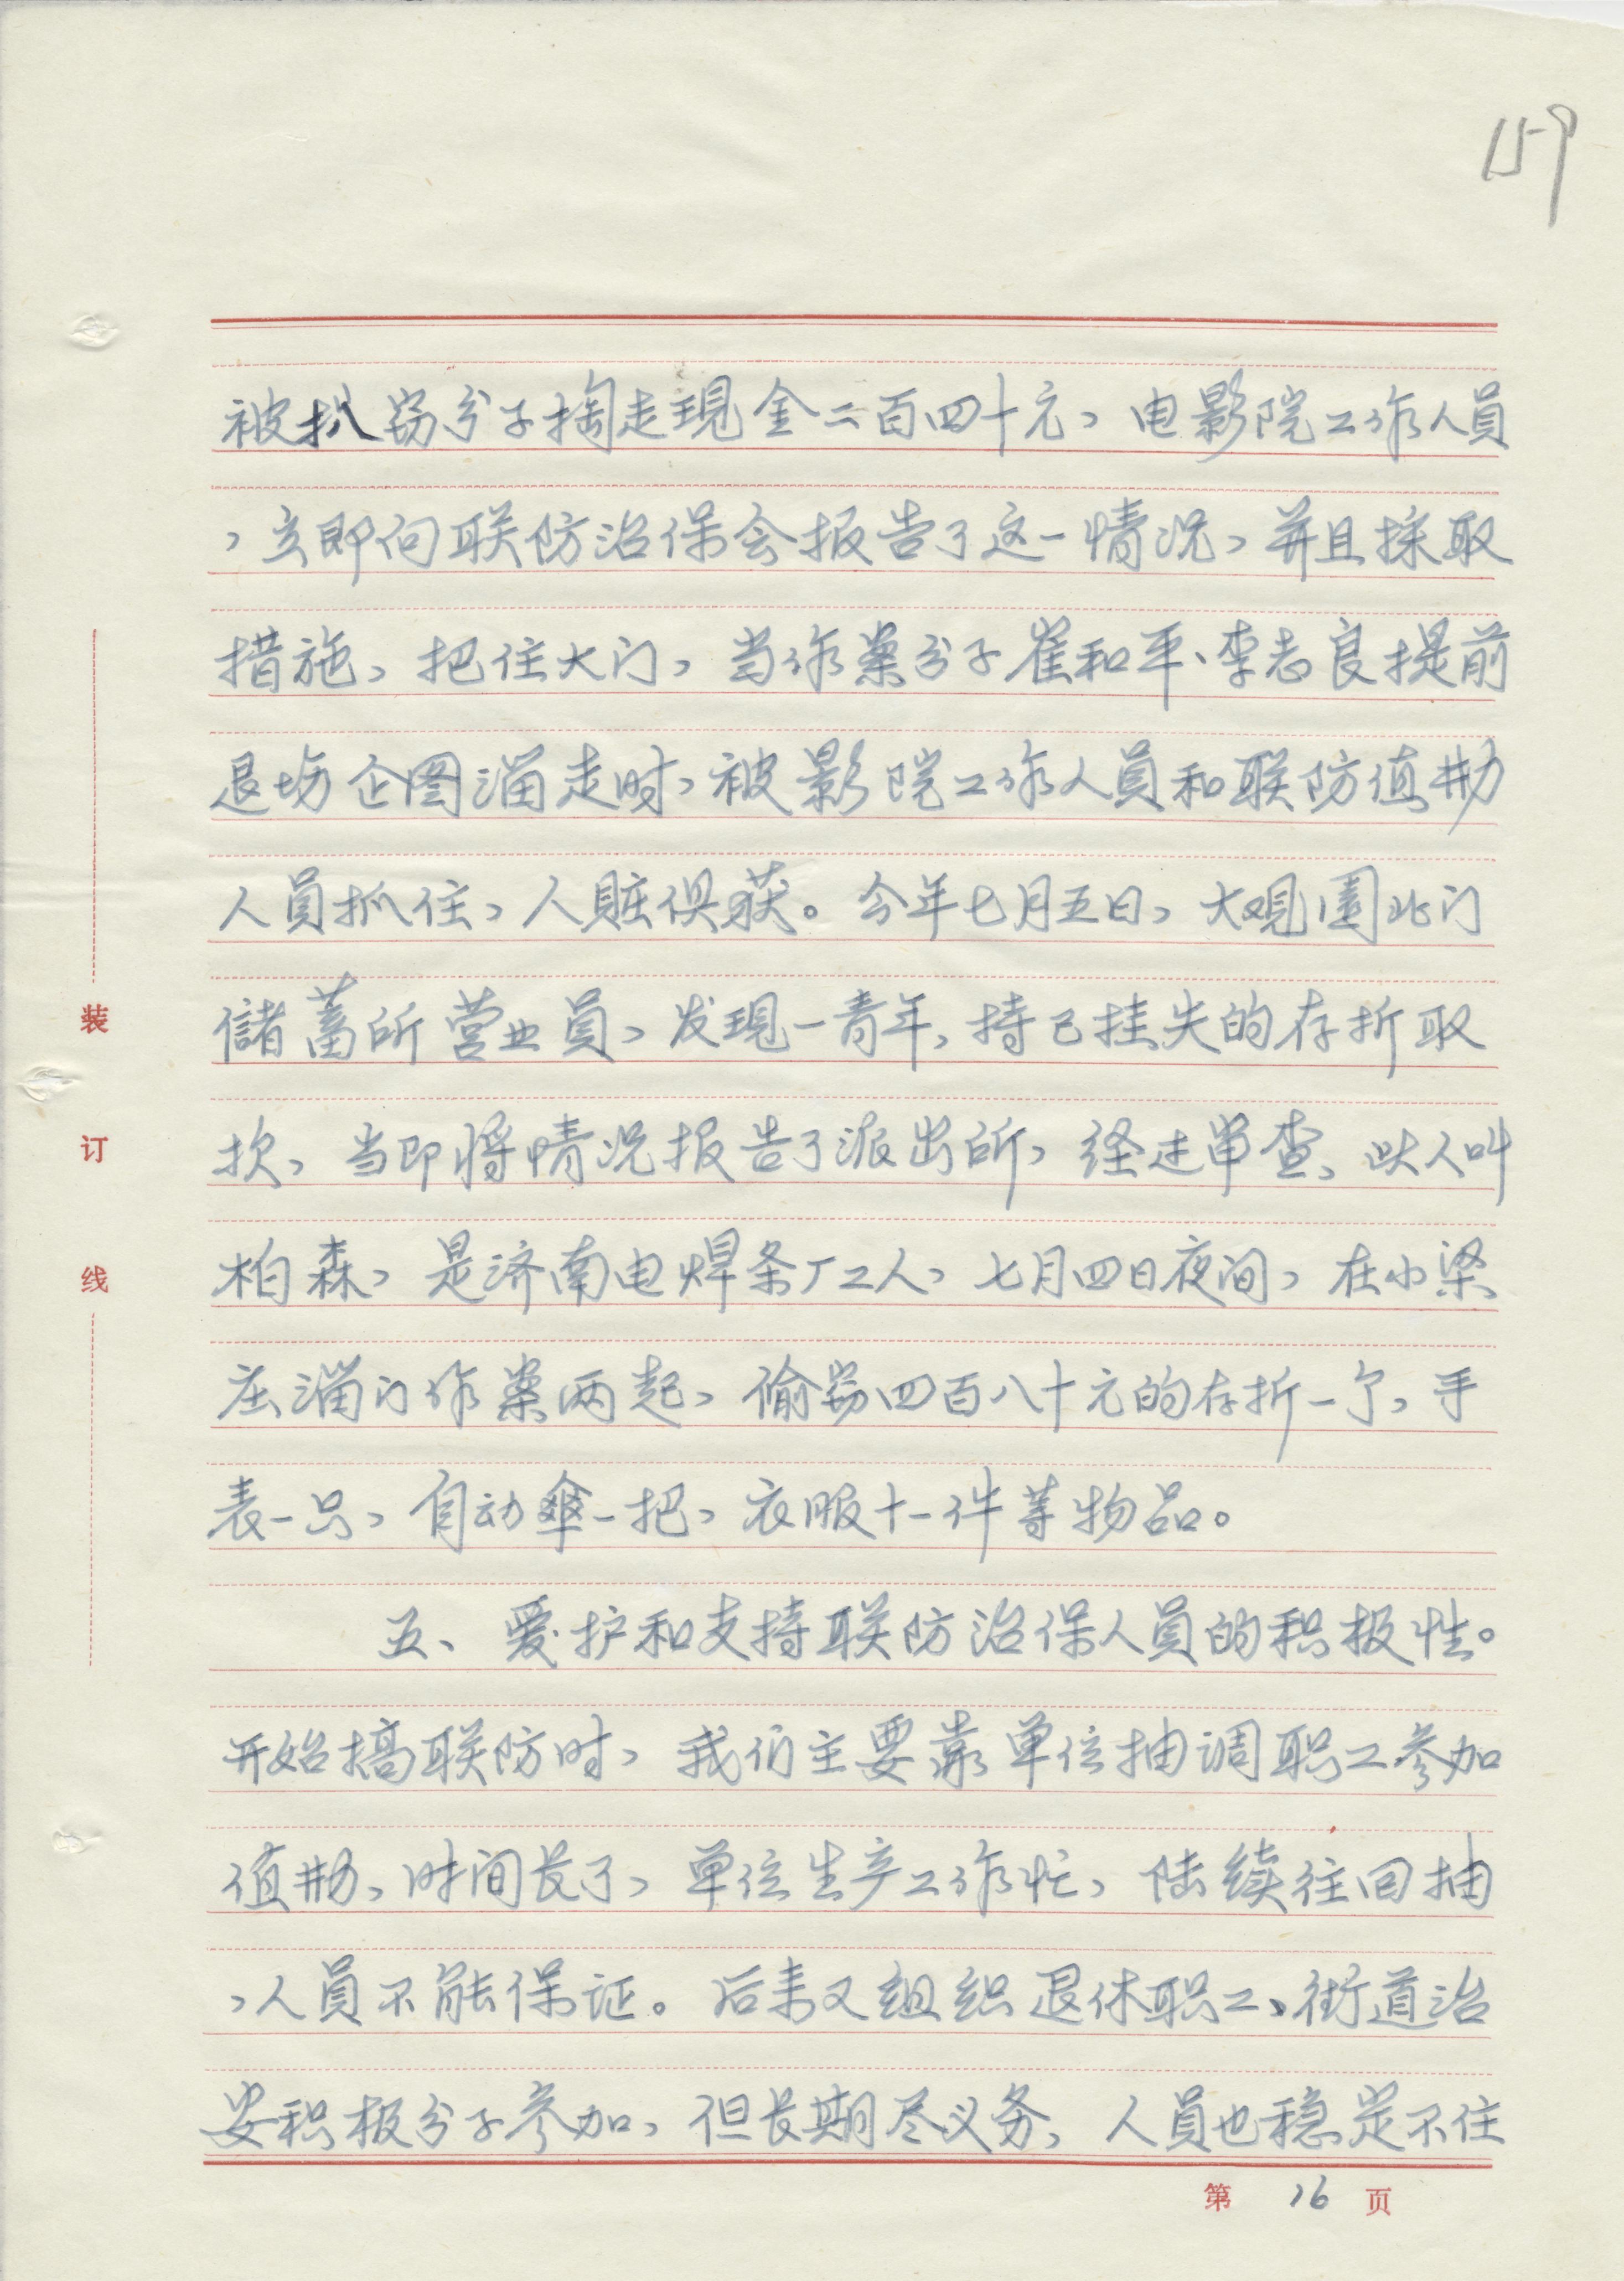 159
被扒窃分子掏走现金二百四十元，电影院工作人員
，立即向联防治保会报告了这一情况，并且採取
措施，把住大门，当作案分子崔和平、李志良提前
退场企图溜走时，被影院工作人員和联防值勤
人員抓住，人賍俱获。今年七月五日，大观園北门
儲蓄所营业員，发现一青年，持已挂失的存折取
款，当即将情况报告了派出所，经过审查，此人叫
柏森，是济南电焊条厂工人，七月四日夜间，在小梁
庄溜门作案两起，偷窃四百八十元的存折一个，手
表一只，自动傘一把，衣服十一件等物品。
五、爱护和支持联防治保人員的积极性。
开始搞联防时，我们主要靠单位抽调职工参加
值勤，时间长了，单位生产工作忙，陆续往回抽
，人員不能保证。后来又组织退休职工、街道治
安积极分子参加，但长期尽义务，人員也稳定不住
装
订
线
第 16 页